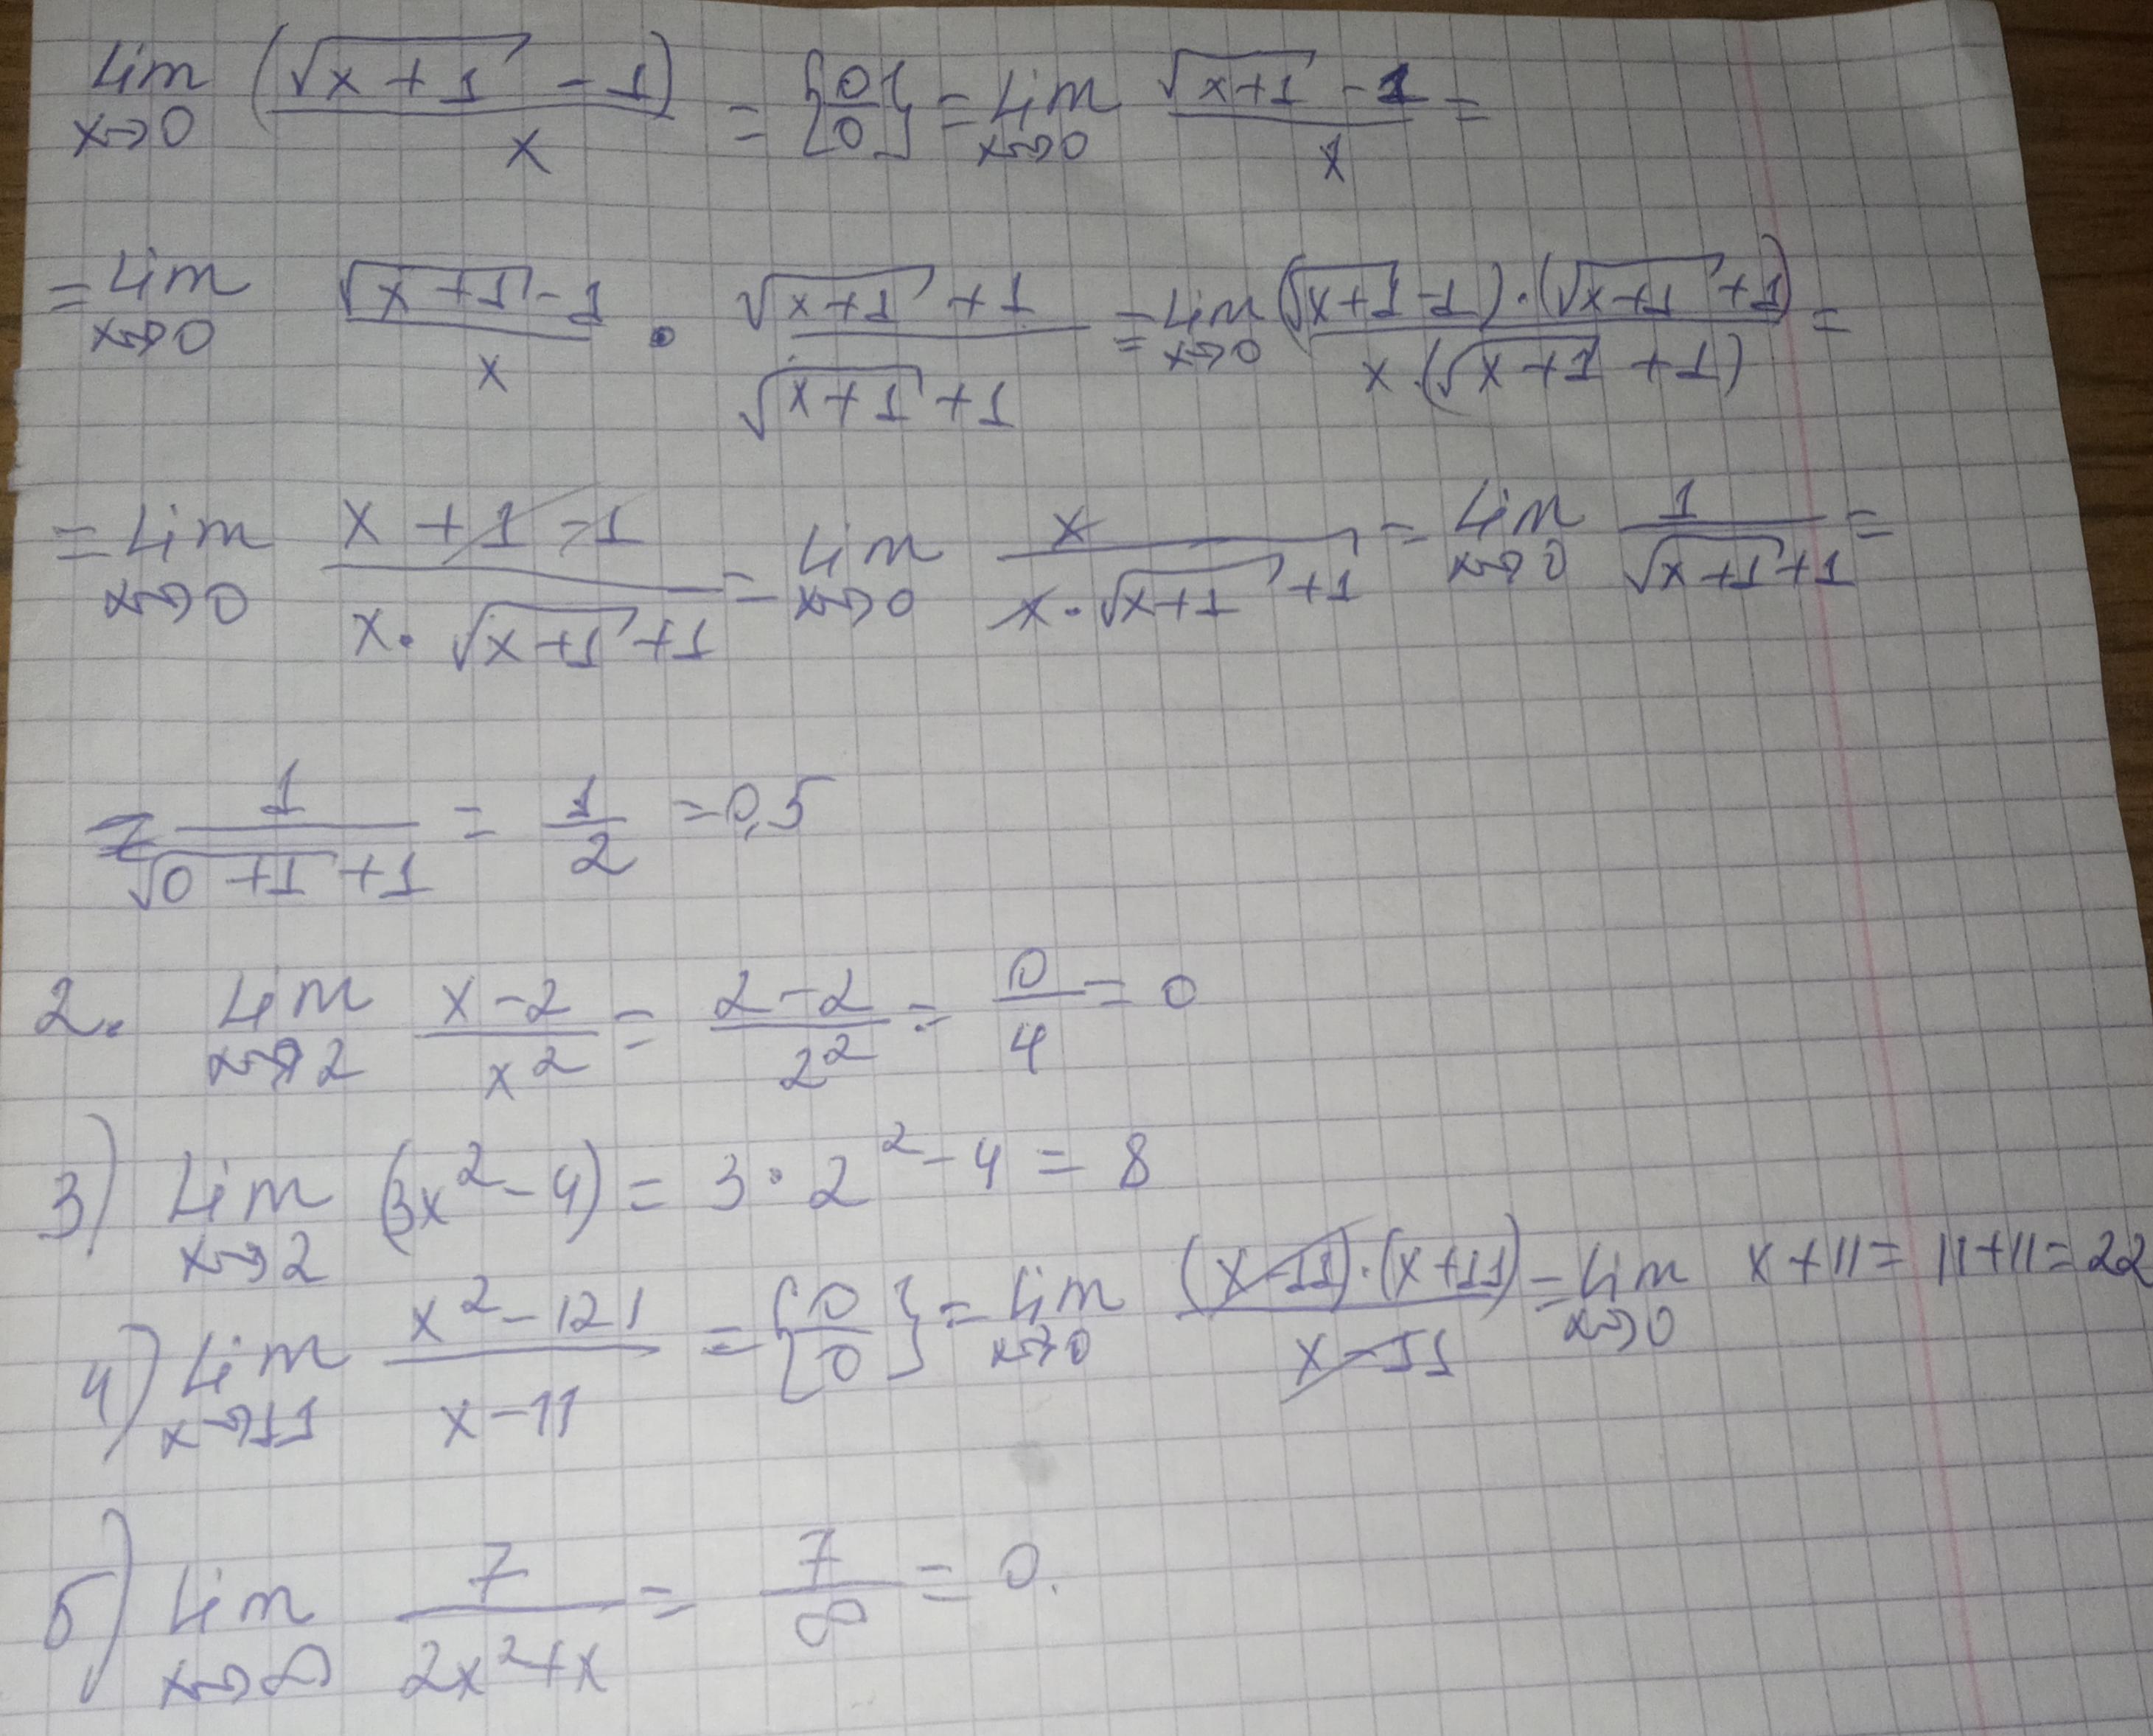 Lim x→0 (√(x+1) - 1)/x = {0/0} = Lim x→0 (√(x+1) - 1)/x =
= Lim x→0 (√(x+1) - 1)/x · (√(x+1) + 1)/(√(x+1) + 1) = Lim x→0 ((√(x+1) - 1)·(√(x+1) + 1))/(x·(√(x+1) + 1)) =
= Lim x→0 (x + 1 - 1)/(x·√(x+1) + 1) = Lim x→0 x/(x·√(x+1) + 1) = Lim x→0 1/(√(x+1) + 1) =
= 1/(√(0+1) + 1) = 1/2 = 0,5
2. Lim x→2 (x-2)/x² = (2-2)/2² = 0/4 = 0
3) Lim x→2 (3x² - 4) = 3·2² - 4 = 8
4) Lim x→11 (x² - 121)/(x - 11) = {0/0} = Lim x→0 ((x-11)·(x+11))/(x-11) = Lim x→0 x + 11 = 11 + 11 = 22
5) Lim x→∞ 7/(2x² + x) = 7/∞ = 0.